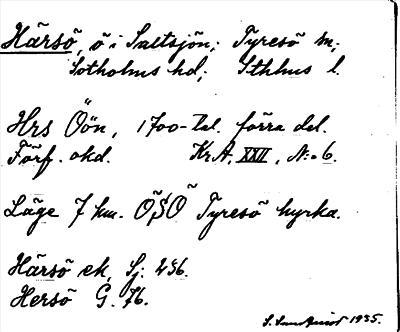 Härsö, ö i Saltsjön; Tyresö sn;
Sotholms hd; Sthlms l.
Hrs Öön, 1700-tal. förra del.
Förf. okd. KrA, XXII, N:o 6.
Läge 7 km. ÖSÖ Tyresö kyrka.
Härsö ek, Sj: 236.
Hersö G. 76.
1935.